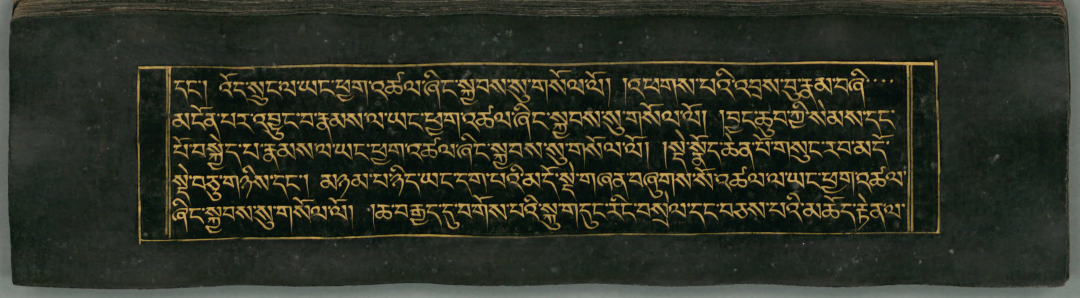 དང་། འོད་སྲུངལ་ཡང་ཕྱག་འཚལ་ཞིང་སྐྱབས་སུ་གསོལ་ལོ། །འཕགས་པའི་འབྲས་བུ་རྣམ་བཞི་
མངོན་པར་འབྱུང་བ་རྣམས་ལ་ཡང་ཕྱག་འཚལ་ཞིང་སྐྱབས་སུ་གསོལ་ལོ། །བྱང་ཆུབ་ཀྱི་སེམས་དང་
པོ་བསྐྱེད་པ་རྣམས་ལ་ཡང་ཕྱག་འཚལ་ཞིང་སྐྱབས་སུ་གསོལ་ལོ། །སྡེ་སྣོད་ཆེན་པོ་གསུང་རབ་མདོ་
སྡེ་བཅུ་གཉིས་དང་། མཉམ་པ་ཉིད་ཡང་དག་པའི་མདོ་སྡེ་གཞན་བཞུགས་སོ་འཚལ་ལ་ཡང་ཕྱག་འཚལ་
ཞིང་སྐྱབས་སུ་གསོལ་ལོ། །ཆ་བརྒྱད་དུ་བགོས་པའི་སྐུ་གདུང་རིང་བསྲེལ་དང་བཅས་པའི་མཆོད་རྟེནལ་